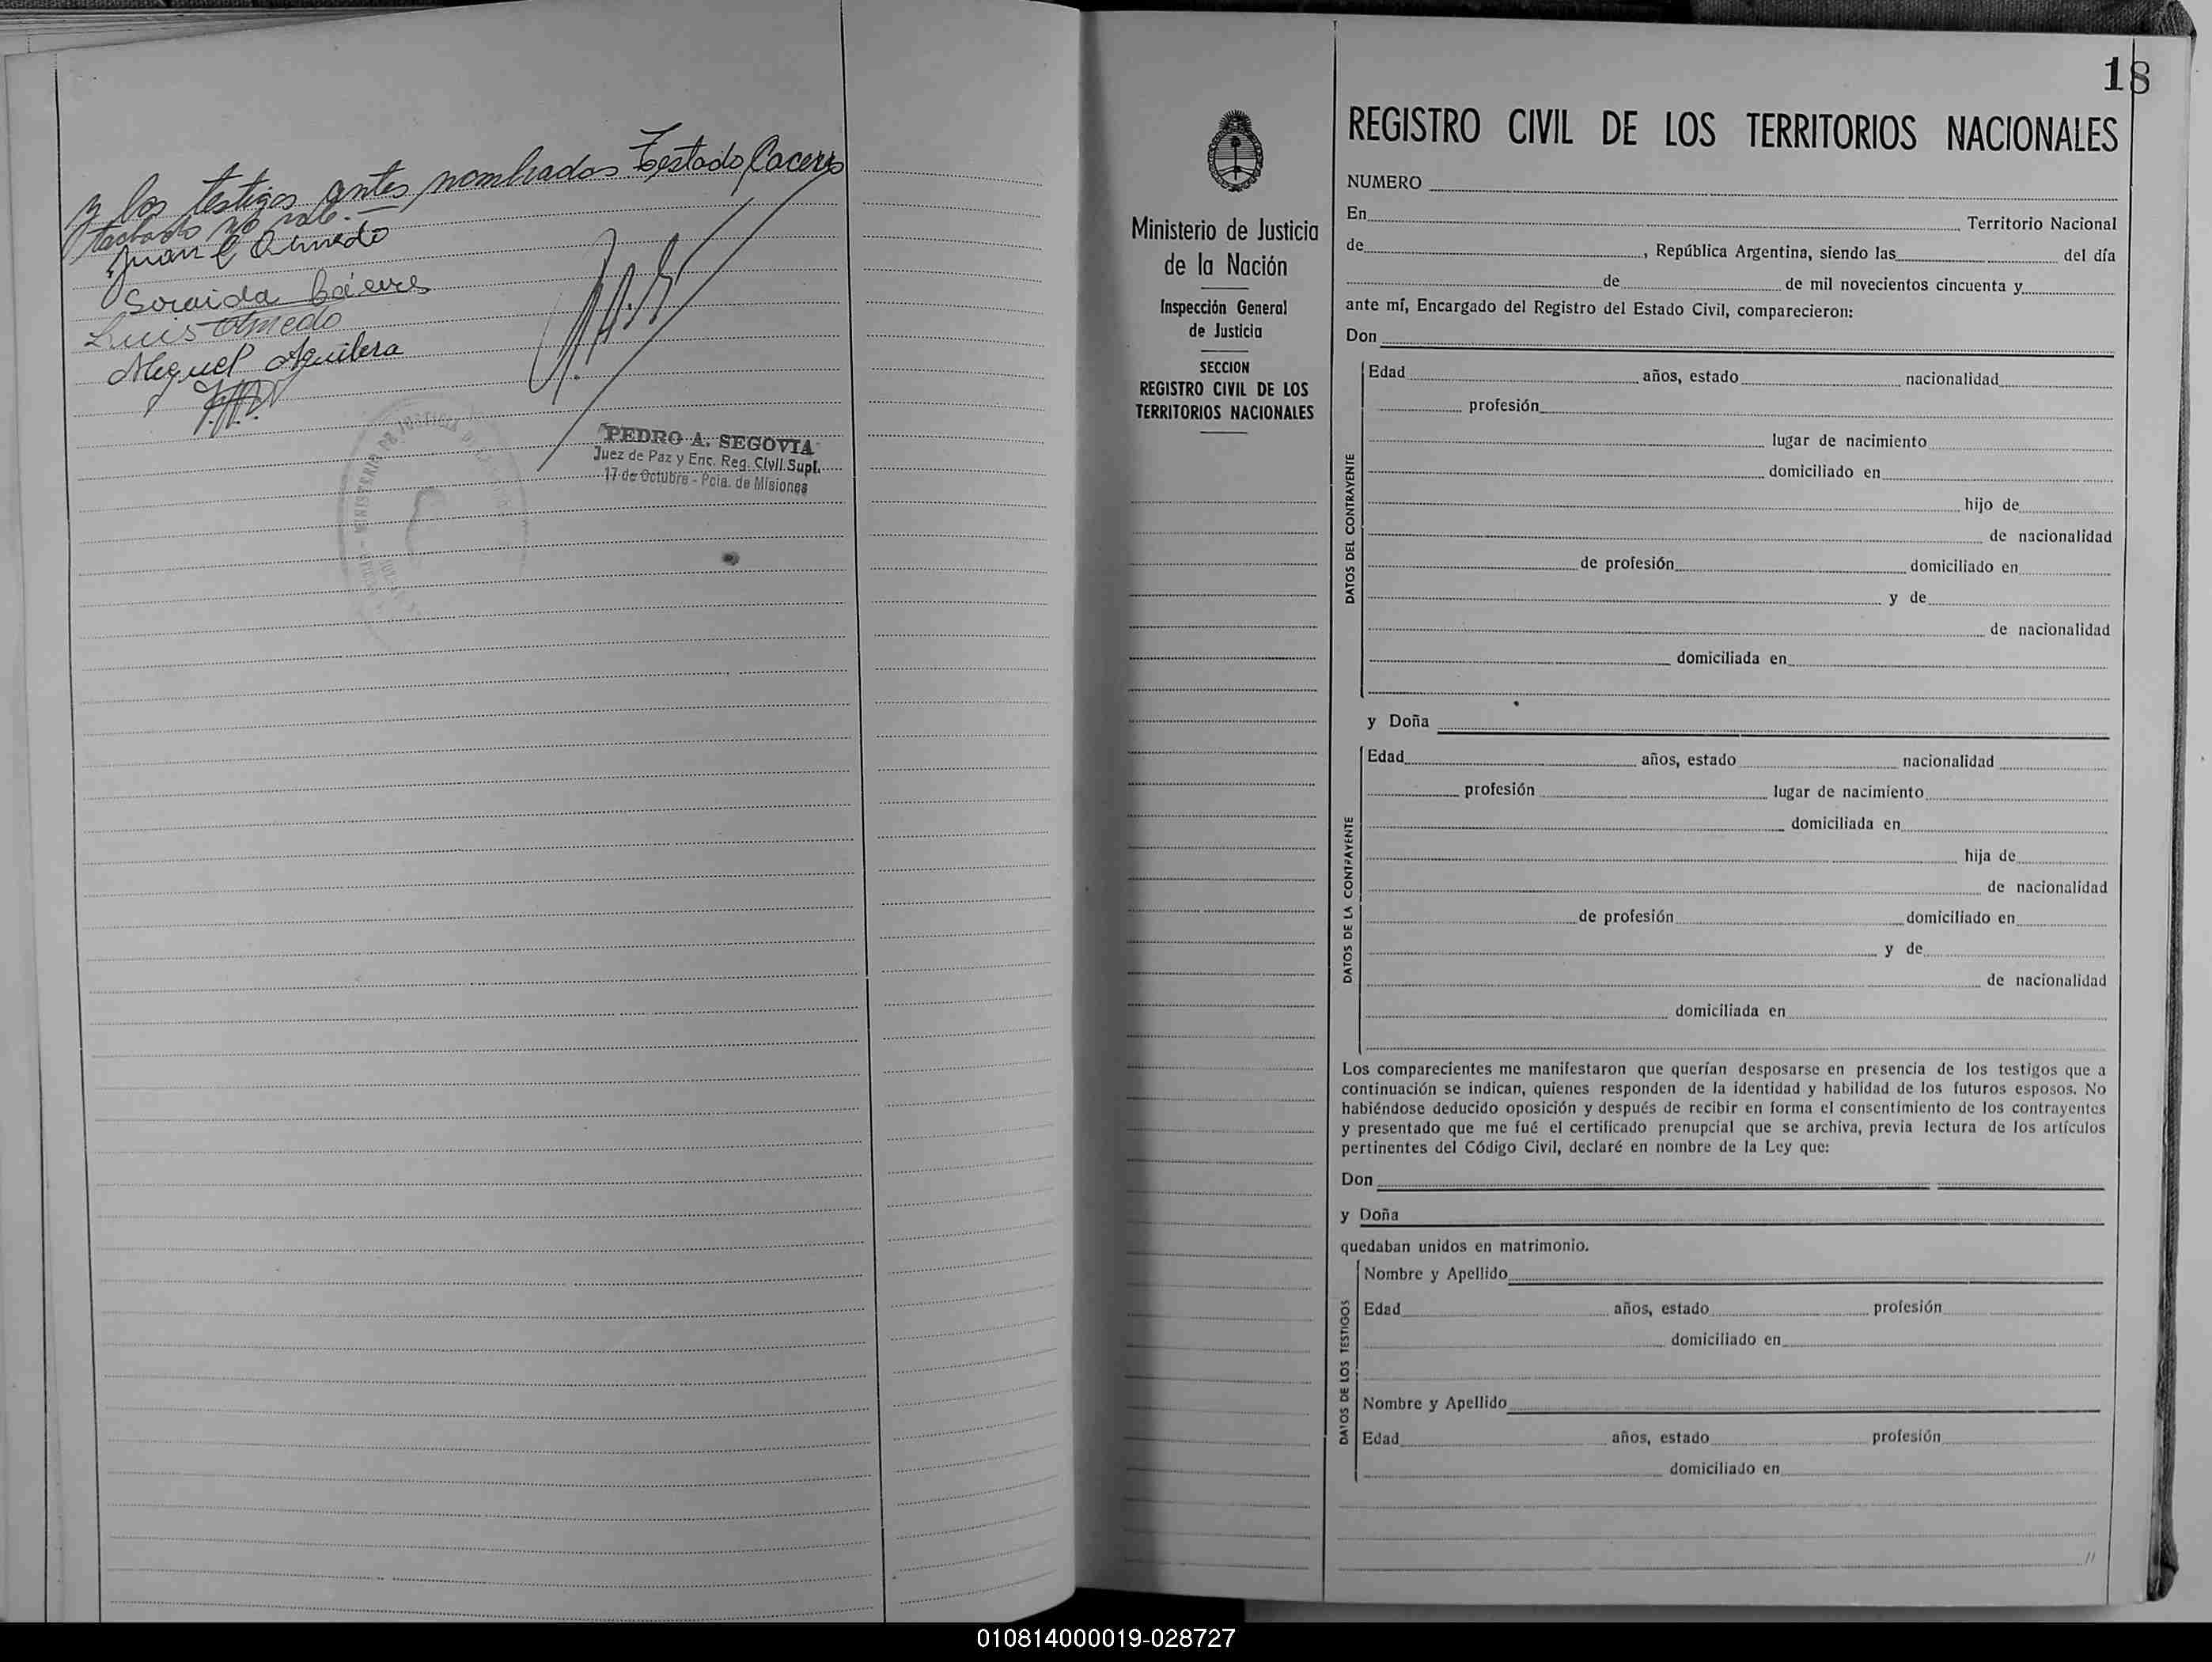 y los testigos antes nombrados Testado Caceres
tachado no vale.
Juan C Olmedo
Soraida Cáceres
Luis Olmedo
Miguel Aguilera
PEDRO A. SEGOVIA
Juez de Paz y Enc. Reg. Civil Supl.
17 de Octubre - Pcia. de Misiones
MINISTERIO DE JUSTICIA
18
Ministerio de Justicia
de la Nación
Inspección General
de Justicia
SECCION
REGISTRO CIVIL DE LOS
TERRITORIOS NACIONALES
REGISTRO CIVIL DE LOS TERRITORIOS NACIONALES
NUMERO
En Territorio Nacional
de , República Argentina, siendo las del día
de de mil novecientos cincuenta y
ante mí, Encargado del Registro del Estado Civil, comparecieron:
Don
DATOS DEL CONTRAYENTE
Edad años, estado nacionalidad
profesión
lugar de nacimiento
domiciliado en
hijo de
de nacionalidad
de profesión domiciliado en
y de
de nacionalidad
domiciliada en
y Doña
DATOS DE LA CONTRAYENTE
Edad años, estado nacionalidad
profesión lugar de nacimiento
domiciliada en
hija de
de nacionalidad
de profesión domiciliado en
y de
de nacionalidad
domiciliada en
Los comparecientes me manifestaron que querían desposarse en presencia de los testigos que a
continuación se indican, quienes responden de la identidad y habilidad de los futuros esposos. No
habiéndose deducido oposición y después de recibir en forma el consentimiento de los contrayentes
y presentado que me fué el certificado prenupcial que se archiva, previa lectura de los artículos
pertinentes del Código Civil, declaré en nombre de la Ley que:
Don
y Doña
quedaban unidos en matrimonio.
DATOS DE LOS TESTIGOS
Nombre y Apellido
Edad años, estado profesión
domiciliado en
Nombre y Apellido
Edad años, estado profesión
domiciliado en
//
010814000019-028727